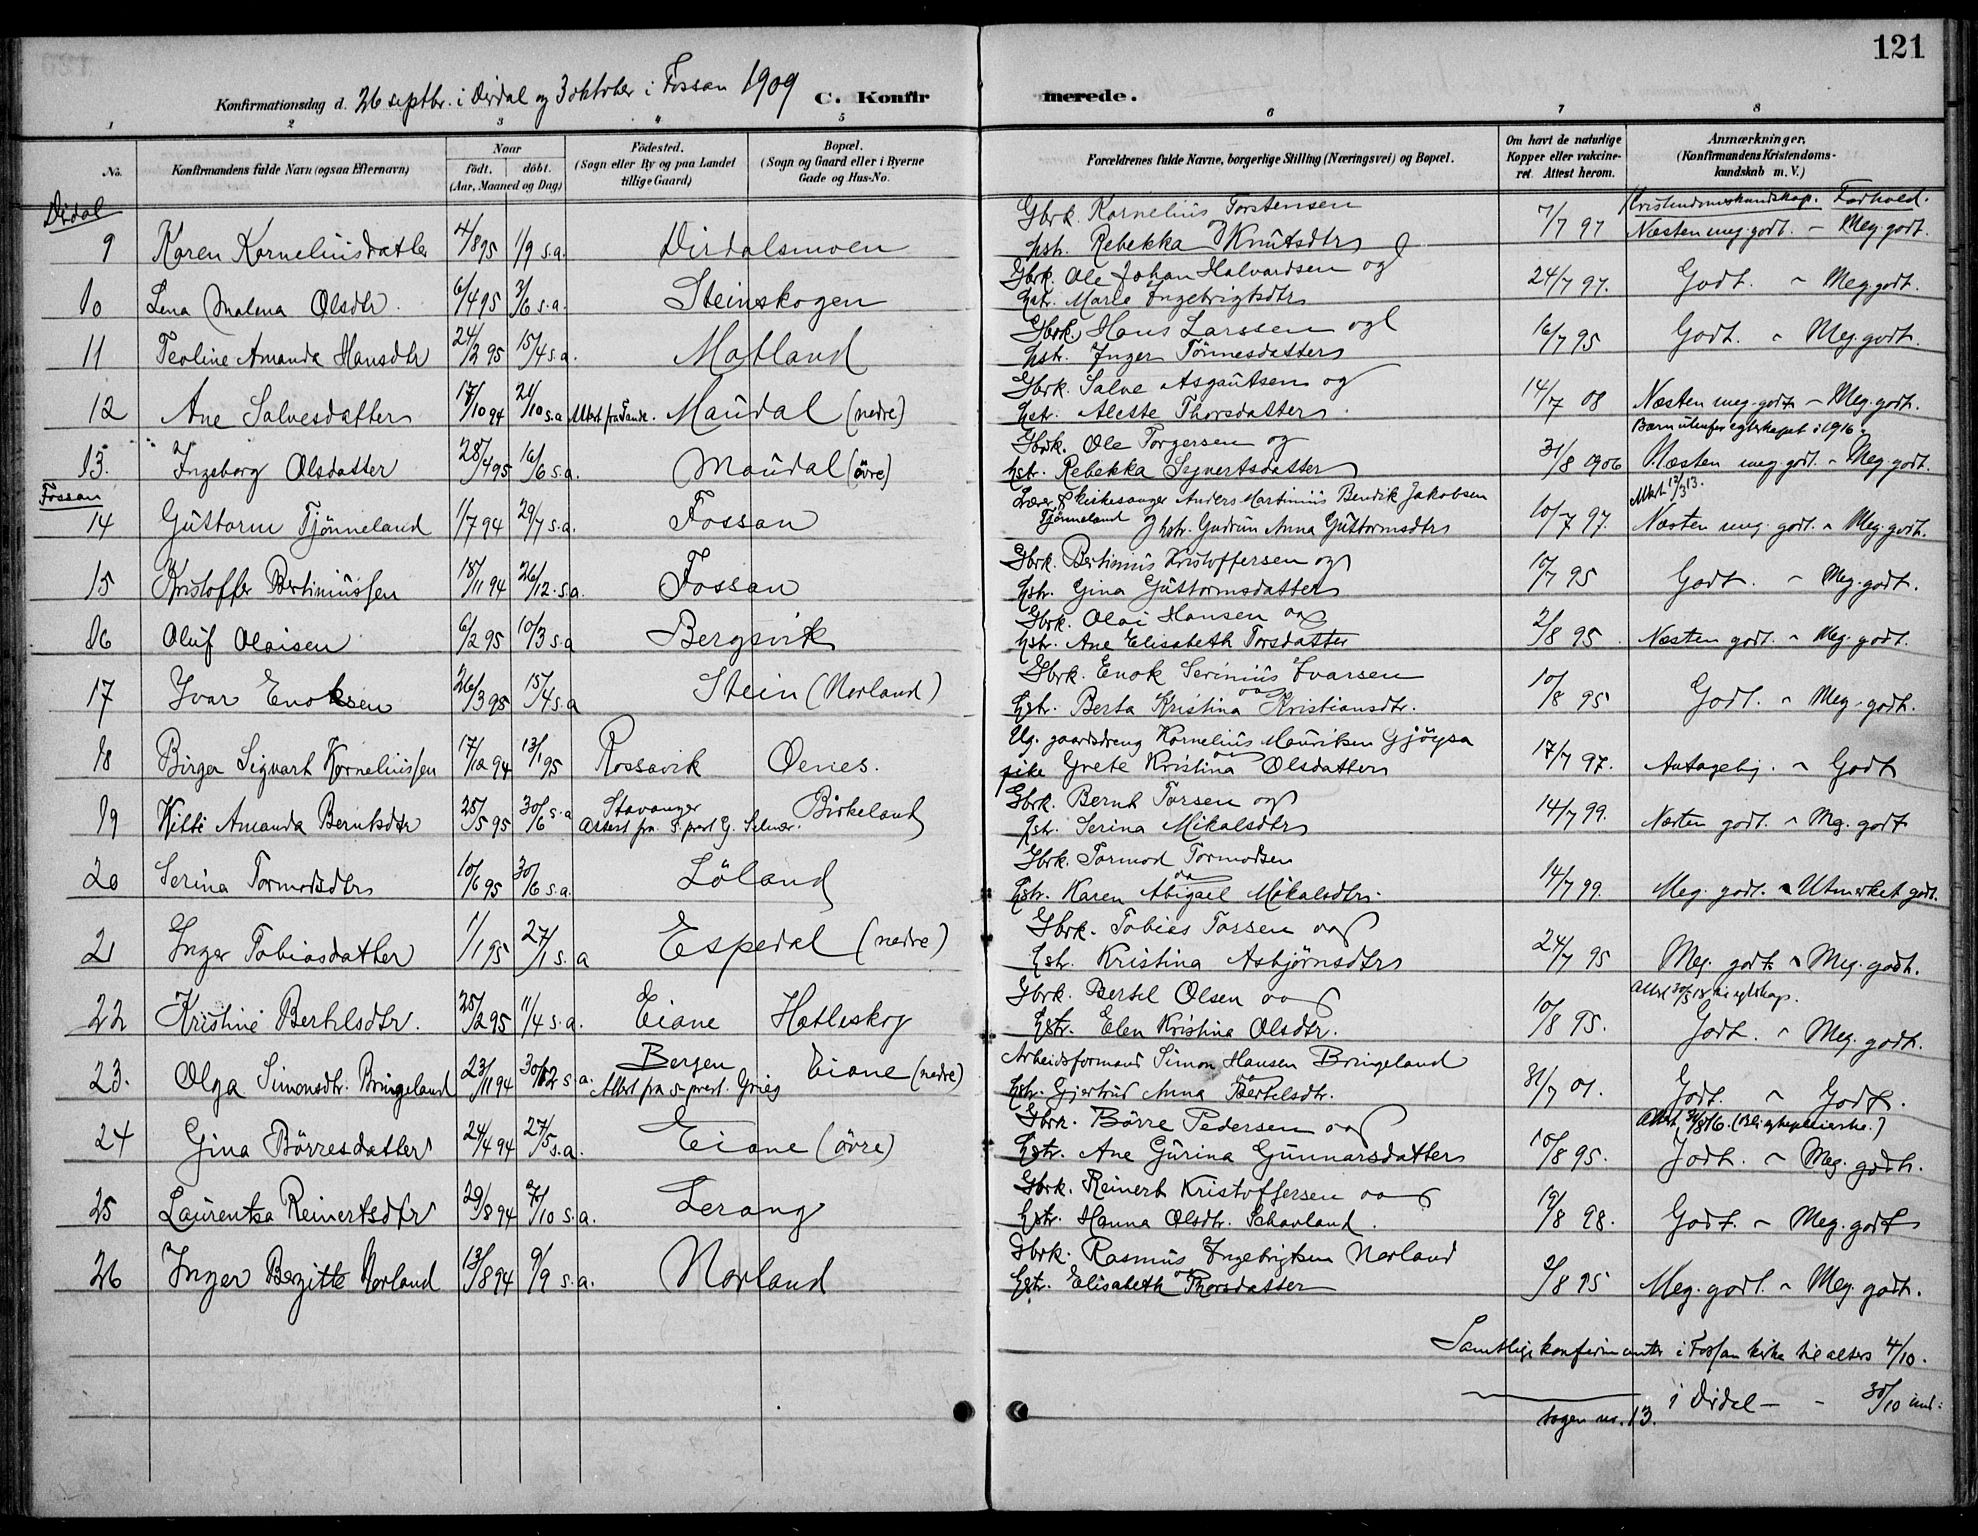 121
Konfirmationsdag d. 26 septbr. i Dirdal og 3 oktober i Fossan 1909
C. Konfirmerede.
1 2 3 4 5 6 7 8
No. Konfirmandens fulde Navn (ogsaa Efternavn) Naar født. døbt. (Aar, Maaned og Dag) Fødested. (Sogn eller By og paa Landet tillige Gaard) Bopæl. (Sogn og Gaard eller i Byerne Gade og Hus-No. Forældrenes fulde Navne, borgerlige Stilling (Næringsvei) og Bopæl. Om havt de naturlige Kopper eller vaccineret. Attest herom. Anmærkninger. (Konfirmandens Kristendomskundskab m. V.)
Dirdal
Kristendomskundskap. Forhold.
9 Karen Korneliusdatter 4/8 95 1/9 s.a. Dirdalsmoen Gbrk. Kornelius Torstensen og hstr. Rebekka Knutsdtr 7/7 97 Næsten meg. godt. - Meg. godt.
10 Lena Malena Olsdtr. 6/4 95 3/6 s.a. Steinskogen Gbrk. Ole Johan Halvardsen og hstr. Marte Ingebrigtsdtr 24/7 97. Godt. - Meg. godt.
11 Teoline Amanda Hansdtr 24/2 95 15/4 s.a. Matland Gbrk. Hans Larssen og hstr. Inger Tönnesdatter 16/7 95 Godt. - Meg. godt.
12 Ane Salvesdatter 17/10 94 21/10 s.a Attest fra Sande. Maudal (nedre) Gbrk. Salve Asgautsen og hstr. Aleste Thorsdatter. 14/7 08 Næsten meg. godt - Meg. godt.
Barn utenfor egteskapet i 1916.
13. Ingeborg Olsdatter 28/4 95 16/6 s.a. Maudal (övre) Gbrk. Ole Torgersen og hstr. Rebekka Sigvertsdatter 31/8 1906 Næsten meg. godt. - Meg. godt.
Fossan
Attest 12/3 13.
14 Guttorm Tjönneland 1/7 94 29/7 s.a. Fossan Lærer & kirkesanger Anders Martinius Bendik Jakobsen Tjönneland og hstr. Gudrun Anna Guttormsdtr 10/7 97. Næsten meg. godt. - Meg. godt.
15 Kristoffer Bertiniussen 18/11 94 26/12. s.a. Fossan Gbrk. Bertinius Kristoffersen og hstr. Gina Guttormsdatter 10/7 95 Godt. - Meg. godt.
16 Oluf Olaisen 6/2 95 10/3 s.a Bergsvik Gbrk. Olai Hansen og hstr. Ane Elisabeth Torsdatter 2/8 95. Næsten godt. - Meg. godt.
17 Ivar Enoksen 26/3 95 15/4 s.a Stein (Norland) Gbrk. Enok Serinius Ivarsen og hstr. Berta Kristina Kristiansdtr. 10/8 95 Godt. - Meg. godt.
18 Birger Sigvart Korneliussen 17/12 94 13/1 95 Rossavik Oenes. Ug. gaardsdreng Kornelius Mauritsen Gjöysa og pike Grete Kristina Olsdatter 17/7 97. Antagelig. - Godt
19 Kitti Amanda Berntsdtr 25/5 95 30/6 s.a Stavanger Attest fra S. prest G. Selmer. Birkeland Gbrk. Bernt Torsen og hstr. Serina Mikalsdtr 14/7 99. Næsten godt. - Meg. godt
20 Serina Tormodsdtr 10/6 95 30/6 s.a. Löland Gbrk. Tormod Tormodsen og hstr. Karen Abigael Mikalsdtr. 14/7 99. Meg. godt. - Utmerket godt.
21 Inger Tobiasdatter 1/1 95 27/1 s.a Espedal (nedre) Gbrk. Tobias Torsen og hstr. Kristina Asbjørnsdtr 24/7 95 Meg. godt - Meg. godt.
22 Kristine Bertelsdtr. 25/2 95 11/4 s.a. Eiane Hatleskog Gbrk. Bertel Olsen og hstr. Elen Kristina Olsdtr. 10/8 95. Godt. - Meg. godt.
23. Olga Simonsdtr. Bringeland 23/11 94 30/12 s.a. Bergen Attest fra s. prest. Grieg Eiane (nedre) Arbeidsformand Simon Hansen Bringeland og hstr. Gjertrud Anna Bertelsdtr. 31/7 01. Godt. - Godt.
24 Gina Börresdatter 24/4 94 27/5 s.a. Eiane (övre) Gbrk. Börre Pedersen og hstr. Ane Gurina Gunnarsdatter 10/8 95. Godt. - Meg. godt.
25 Laurentza Reinertsdtr 29/8 94 7/10 s.a. Lerang Gbrk. Reinert Kristoffersen og hstr. Hanna Olsdtr. Schavland. 19/8 98. Godt. - Meg. godt
26 Inger Bergitte Norland 13/8 94 9/9 s.a. Norland Gbrk. Rasmus Ingebrigtsen Norland og hstr. Elisabeth Thorsdatter 2/8 95 Meg. godt. - Meg. godt.
Samtlige konfirmanter i Fossan kirke til alters 4/10.
i Dirdal - - 30/10
no. 13.